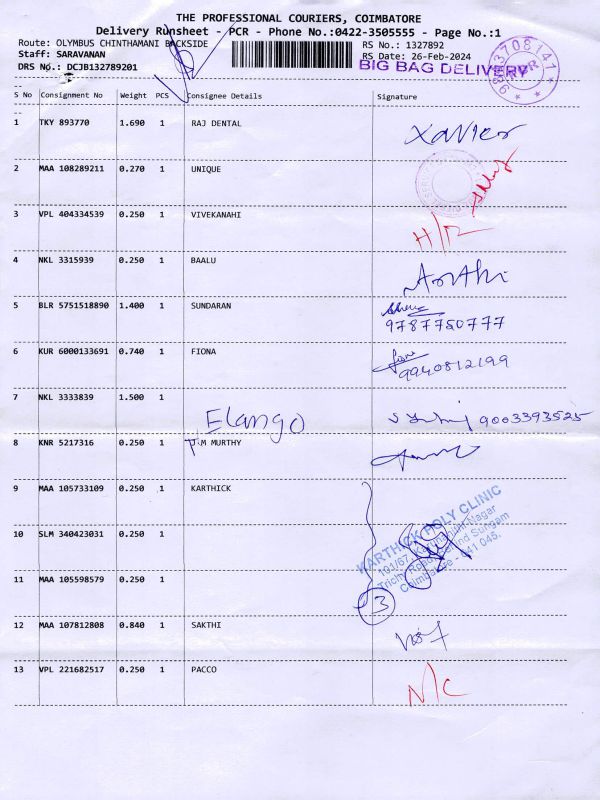 THE PROFESSIONAL COURIERS, COIMBATORE
Delivery Runsheet - PCR - Phone No.:0422-3505555 - Page No.:1
Route: OLYMBUS CHINTHAMANI BACKSIDE
RS No.: 1327892
Staff: SARAVANAN
RS Date: 26-Feb-2024
DRS No.: DCJB132789201
BIG BAG DELIVERY
S No Consignment No Weight PCS Consignee Details Signature
1 TKY 893770 1.690 1 RAJ DENTAL Xavier
2 MAA 108289211 0.270 1 UNIQUE
3 VPL 404334539 0.250 1 VIVEKANAHI H/R
4 NKL 3315939 0.250 1 BAALU Arthi
5 BLR 5751518890 1.400 1 SUNDARAN
9787750777
6 KUR 6000133691 0.740 1 FIONA
9940812199
7 NKL 3333839 1.500 1
Elango 9003393525
8 KNR 5217316 0.250 1 T.M MURTHY
9 MAA 105733109 0.250 1 KARTHICK
KARTHICK POLY CLINIC
101/67, Karunanithi Nagar
Trichy Road, Behind Sungam
Coimbatore - 641 045.
10 SLM 340423031 0.250 1
11 MAA 105598579 0.250 1
3
12 MAA 107812808 0.840 1 SAKTHI
13 VPL 221682517 0.250 1 PACCO N/C